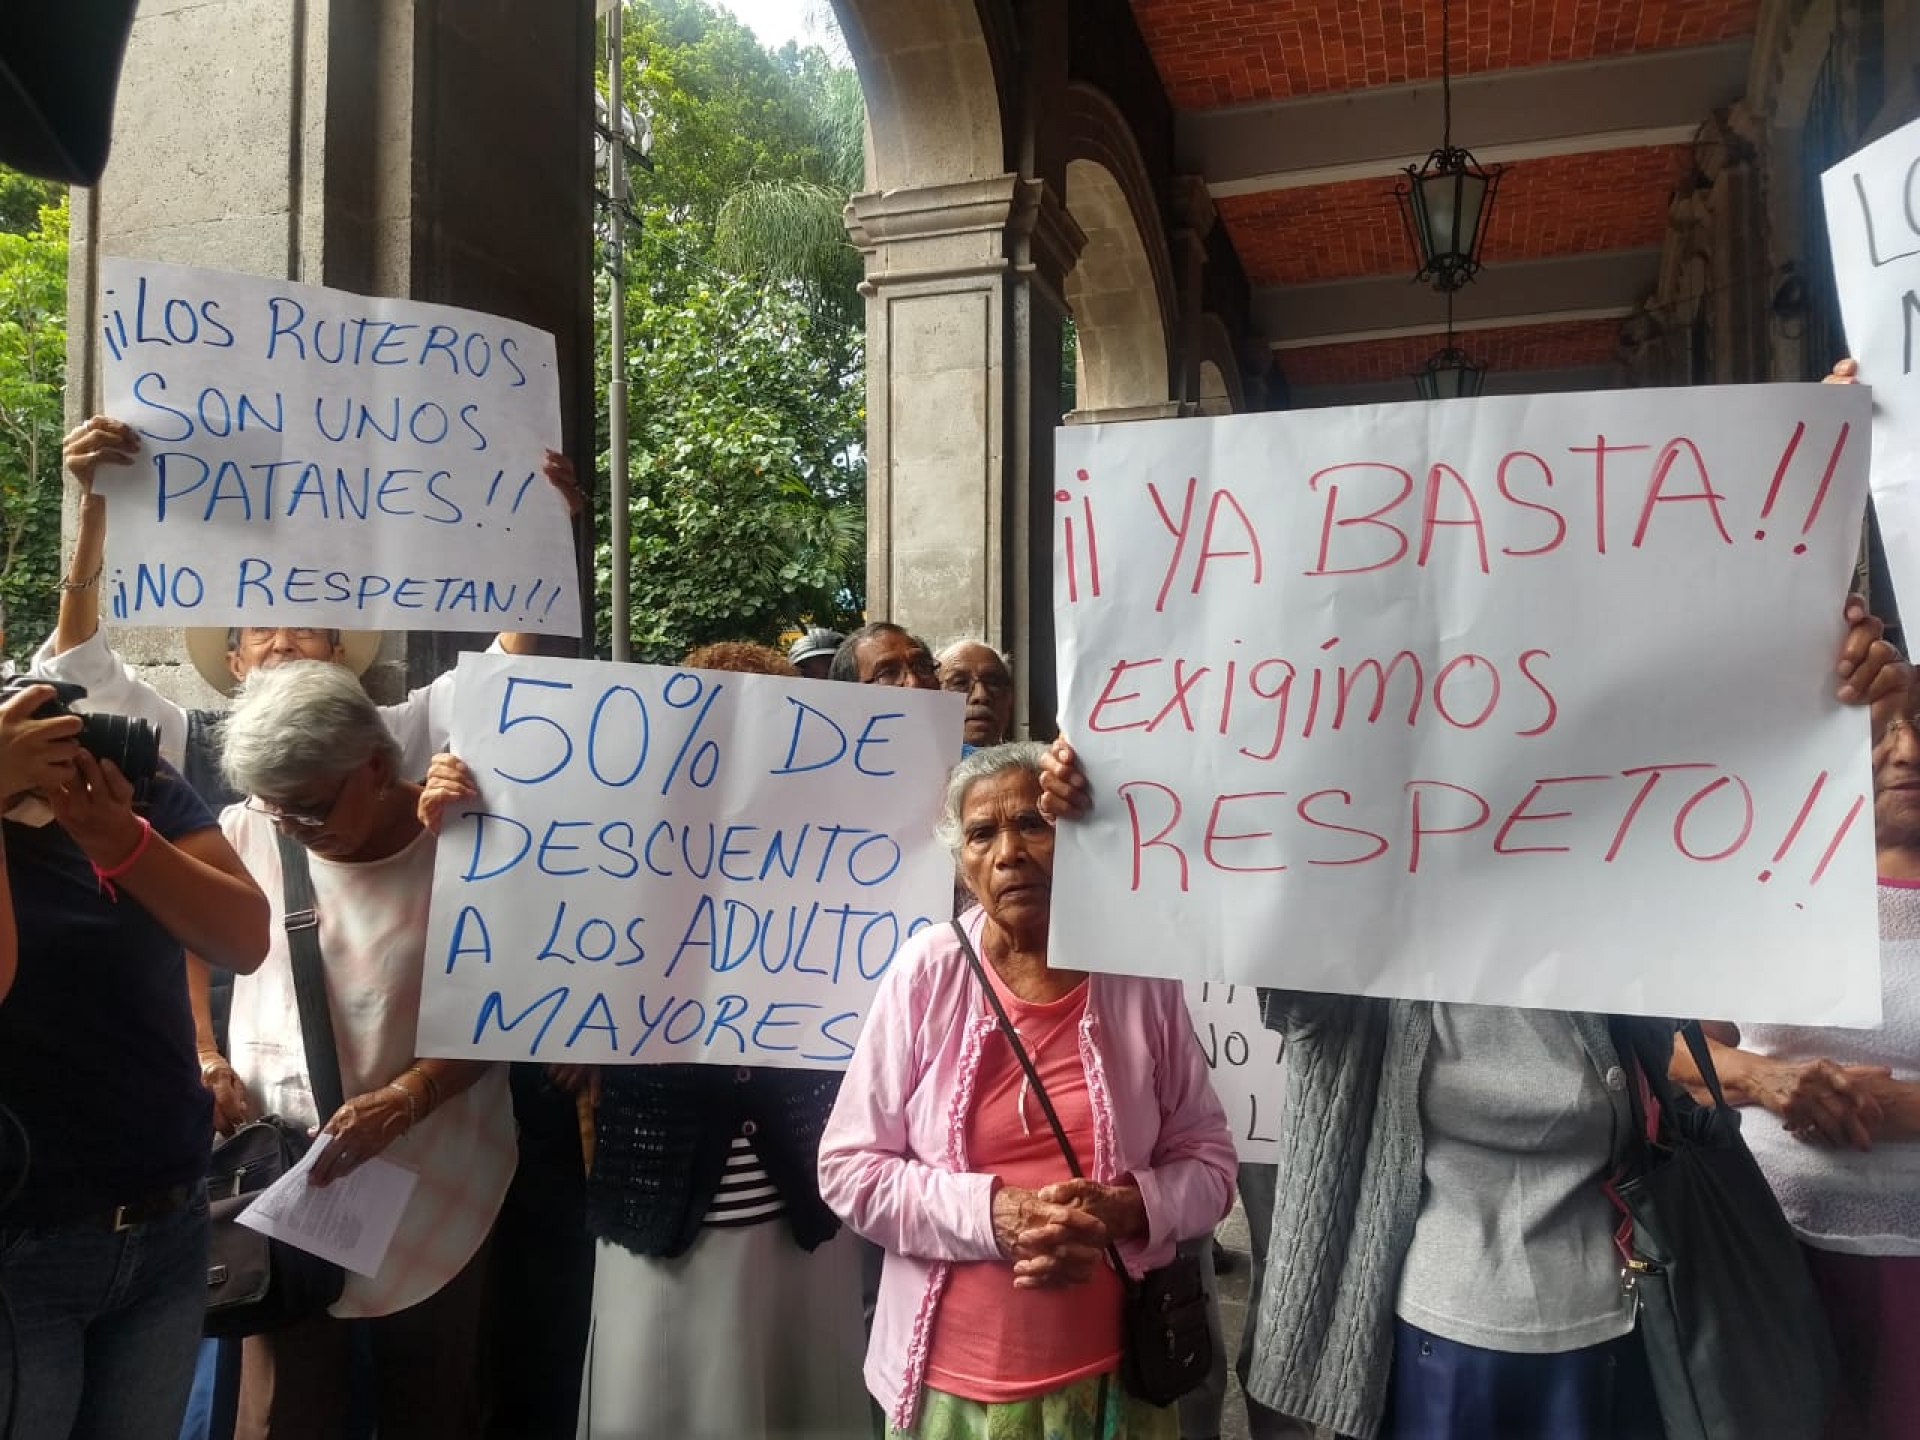 ¡¡LOS RUTEROS
SON UNOS
PATANES!!
¡¡NO RESPETAN!!
50% DE
DESCUENTO
A LOS ADULTOS
MAYORES
¡¡ YA BASTA!!
EXIGÍMOS
RESPETO!!
NO